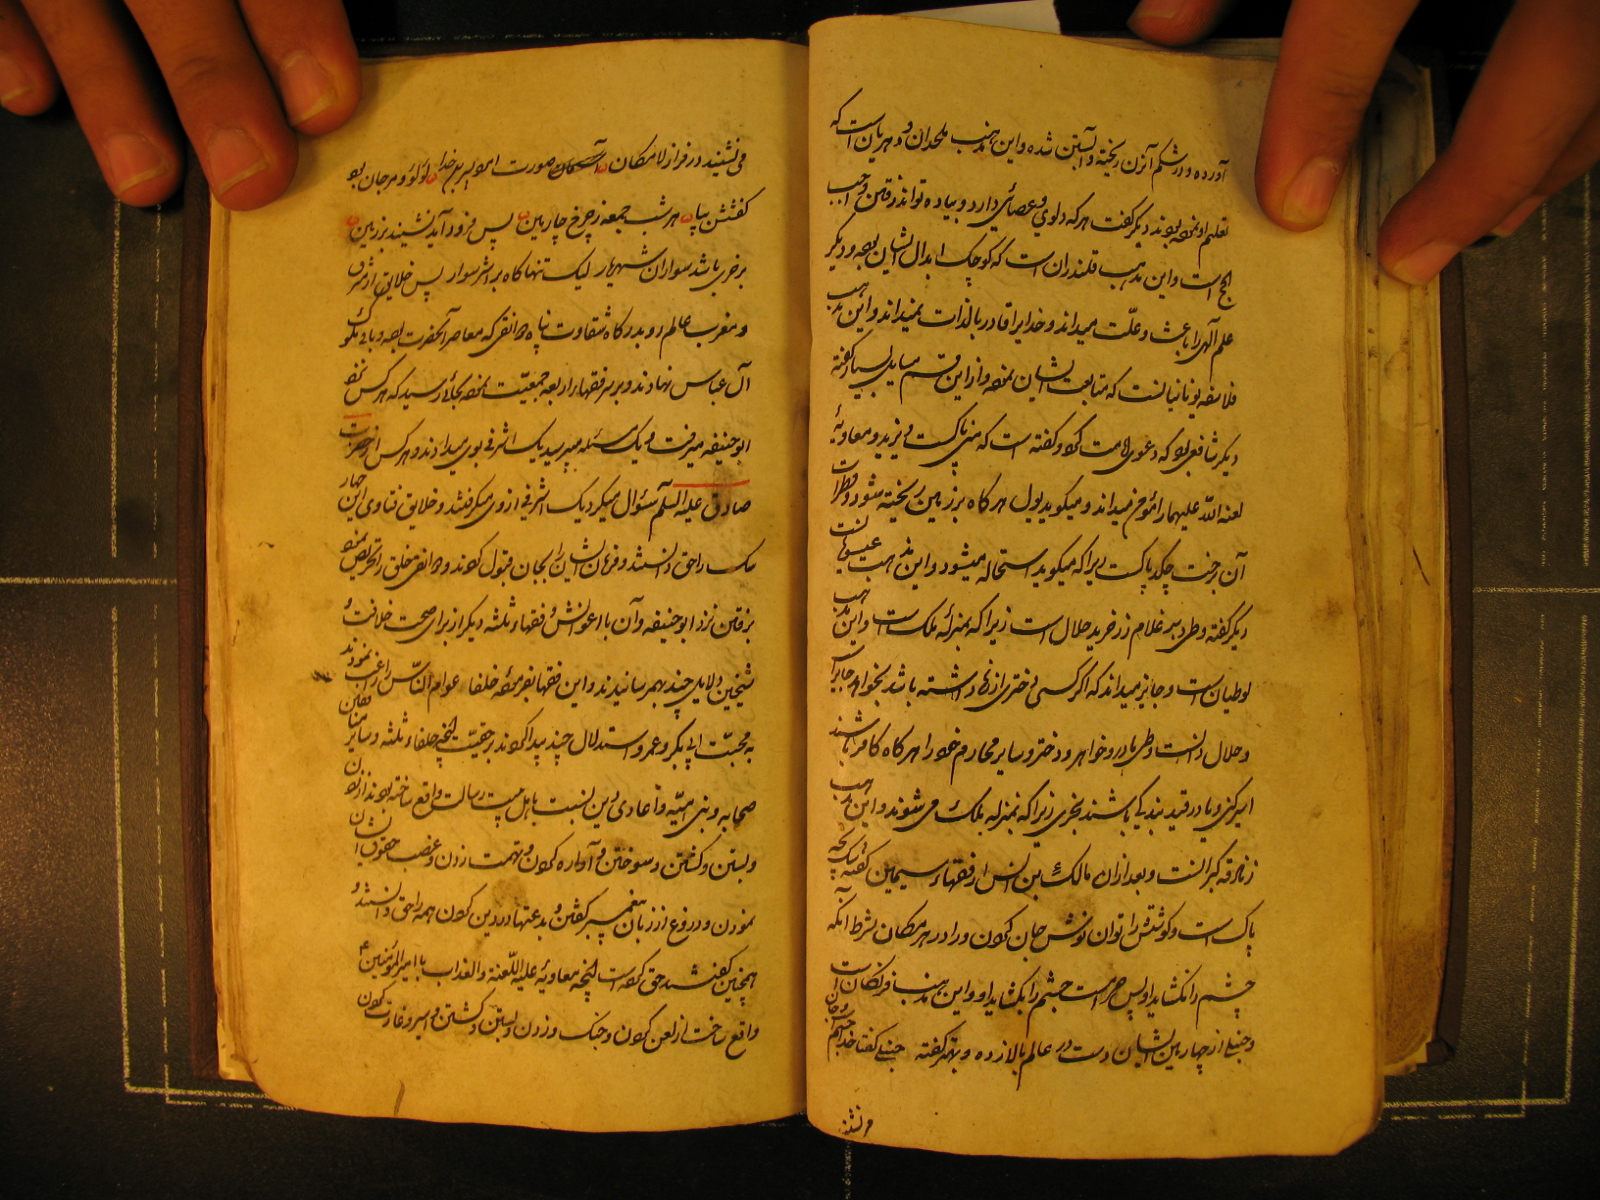 آورده و در شکم آن زن ریخته و آبستن شده و این مذهب ملحدان و دهریان است که
تعلیم او نموده‌اند دیگر گفت هر که دلوی و عصائی دارد و پیاده تواند رفتن واجب
الحج است و این مذهب قلندران است که کوچک ابدال ایشان بوده و دیگر
علم آلهی را باعث و علّت میداند و خدایرا قادر بالذات نمیداند و این مذهب
فلاسفه یونانیانست که متابعت ایشان نموده و از این قسم مسایل بسیار گفته
دیگر شافعی بود که دعوی امامت کرد و گفته است که منی پاکست و یزید و معاویهٔ
لعنه اللّه علیهما را مؤمن میداند و میگوید بول هر گاه بر زمین ریخته شود و قطرات
آن بر رخت چکد پاکست زیرا که میگوید استحاله میشود و این مذهب
دیگر گفته وطی دبر غلام زرخرید حلال است زیرا که بمنزلهٔ ملک است و این مذهب
لوطیان است و جایز میداند که اگر کسی دختری از زنا داشته باشد بخواهد جایز
و حلال دانست وطی مادر و خواهر و دختر و سایر محارم خود را هر گاه کافر باشند
اسیر کنی و یا در قید بندیگی باشند بخری زیرا که بمنزله ملک می شوند و این مذهب
زنادقه گبرانست و بعد از آن مالک بن انس از فقهاء سیمین گفته سگ بچه
پاک است و گوشتش را توان نوش جان کردن و را در هر مکان بشرط آنکه
چشم را نگشاید او پس حرمست چشم را بگشاید او و این مذهب فرنگان است
و حنبلی از چهارمین ایشان دست در عالم بالا زده و گفته حنبلی گفتا خدا جسم و جان
می نشیند در فراز لامکان صورت امرد پسر خدا لؤلؤ و مرجان بود
کفشش بپا هر شب جمعه ز چرخ چارمین پس فرود آید نشیند بر زمین
بر خری باشد سوار آن شهریار لیک تنها گاه بر اشتر سوار پس خلایق از مشرق
و مغرب عالم رو بدرگاه شقاوت پناه حوانفی که معاصر آنحضرت بوده و بانی ملوک
آل عباس نهادند و بر سر فقهاء اربعه جمعیّت نموده بجائی رسید که هر کس نزد
ابو حنیفه میرفت و یک مسئله میپرسید یک اشرفی بوی میدادند و هر کس از حضرت
صادق علیه السلام سؤال میکرد یک اشرفی از وی میگرفتند و خلایق فتاوی این چهار
سک را حق دانستند و فرمان ایشان را بجان قبول کردند و خلق را تحریص نموده
برفتن نزد ابو حنیفه و آن با اعوانش و فقهاء ثلثه دیگر از برای صحت خلافت
شیخین دلایل چند بهم رسانیدند و این فقها بفرموده خلفا عوام النّاس را راغب نمودند
به محبّت ابی بکر و عمر و استدلال چند پیدا کردند بر حقیّت آنچه خلفاء ثلثه و سایر
صحابه و بنی امیّه و اعادی دین نسبت باهل بیت رسالت واقع ساخته بودند از زدن
و بستن و کشتن و سوختن و آواره کردن و تهمت زدن و غصب حقوق ایشان
نمودن و دروغ از زبان پیغمبر گفتن و بدعتها در دین کردن همه را حق دانستند و
همچنین گفتند حق کرده است آنچه معاویه علیه اللّعنة والعذاب با امیر المؤمنین ع
واقع ساخت از لعن کردن و جنک و زدن و بستن و کشتن و اسیر و غارت کردن